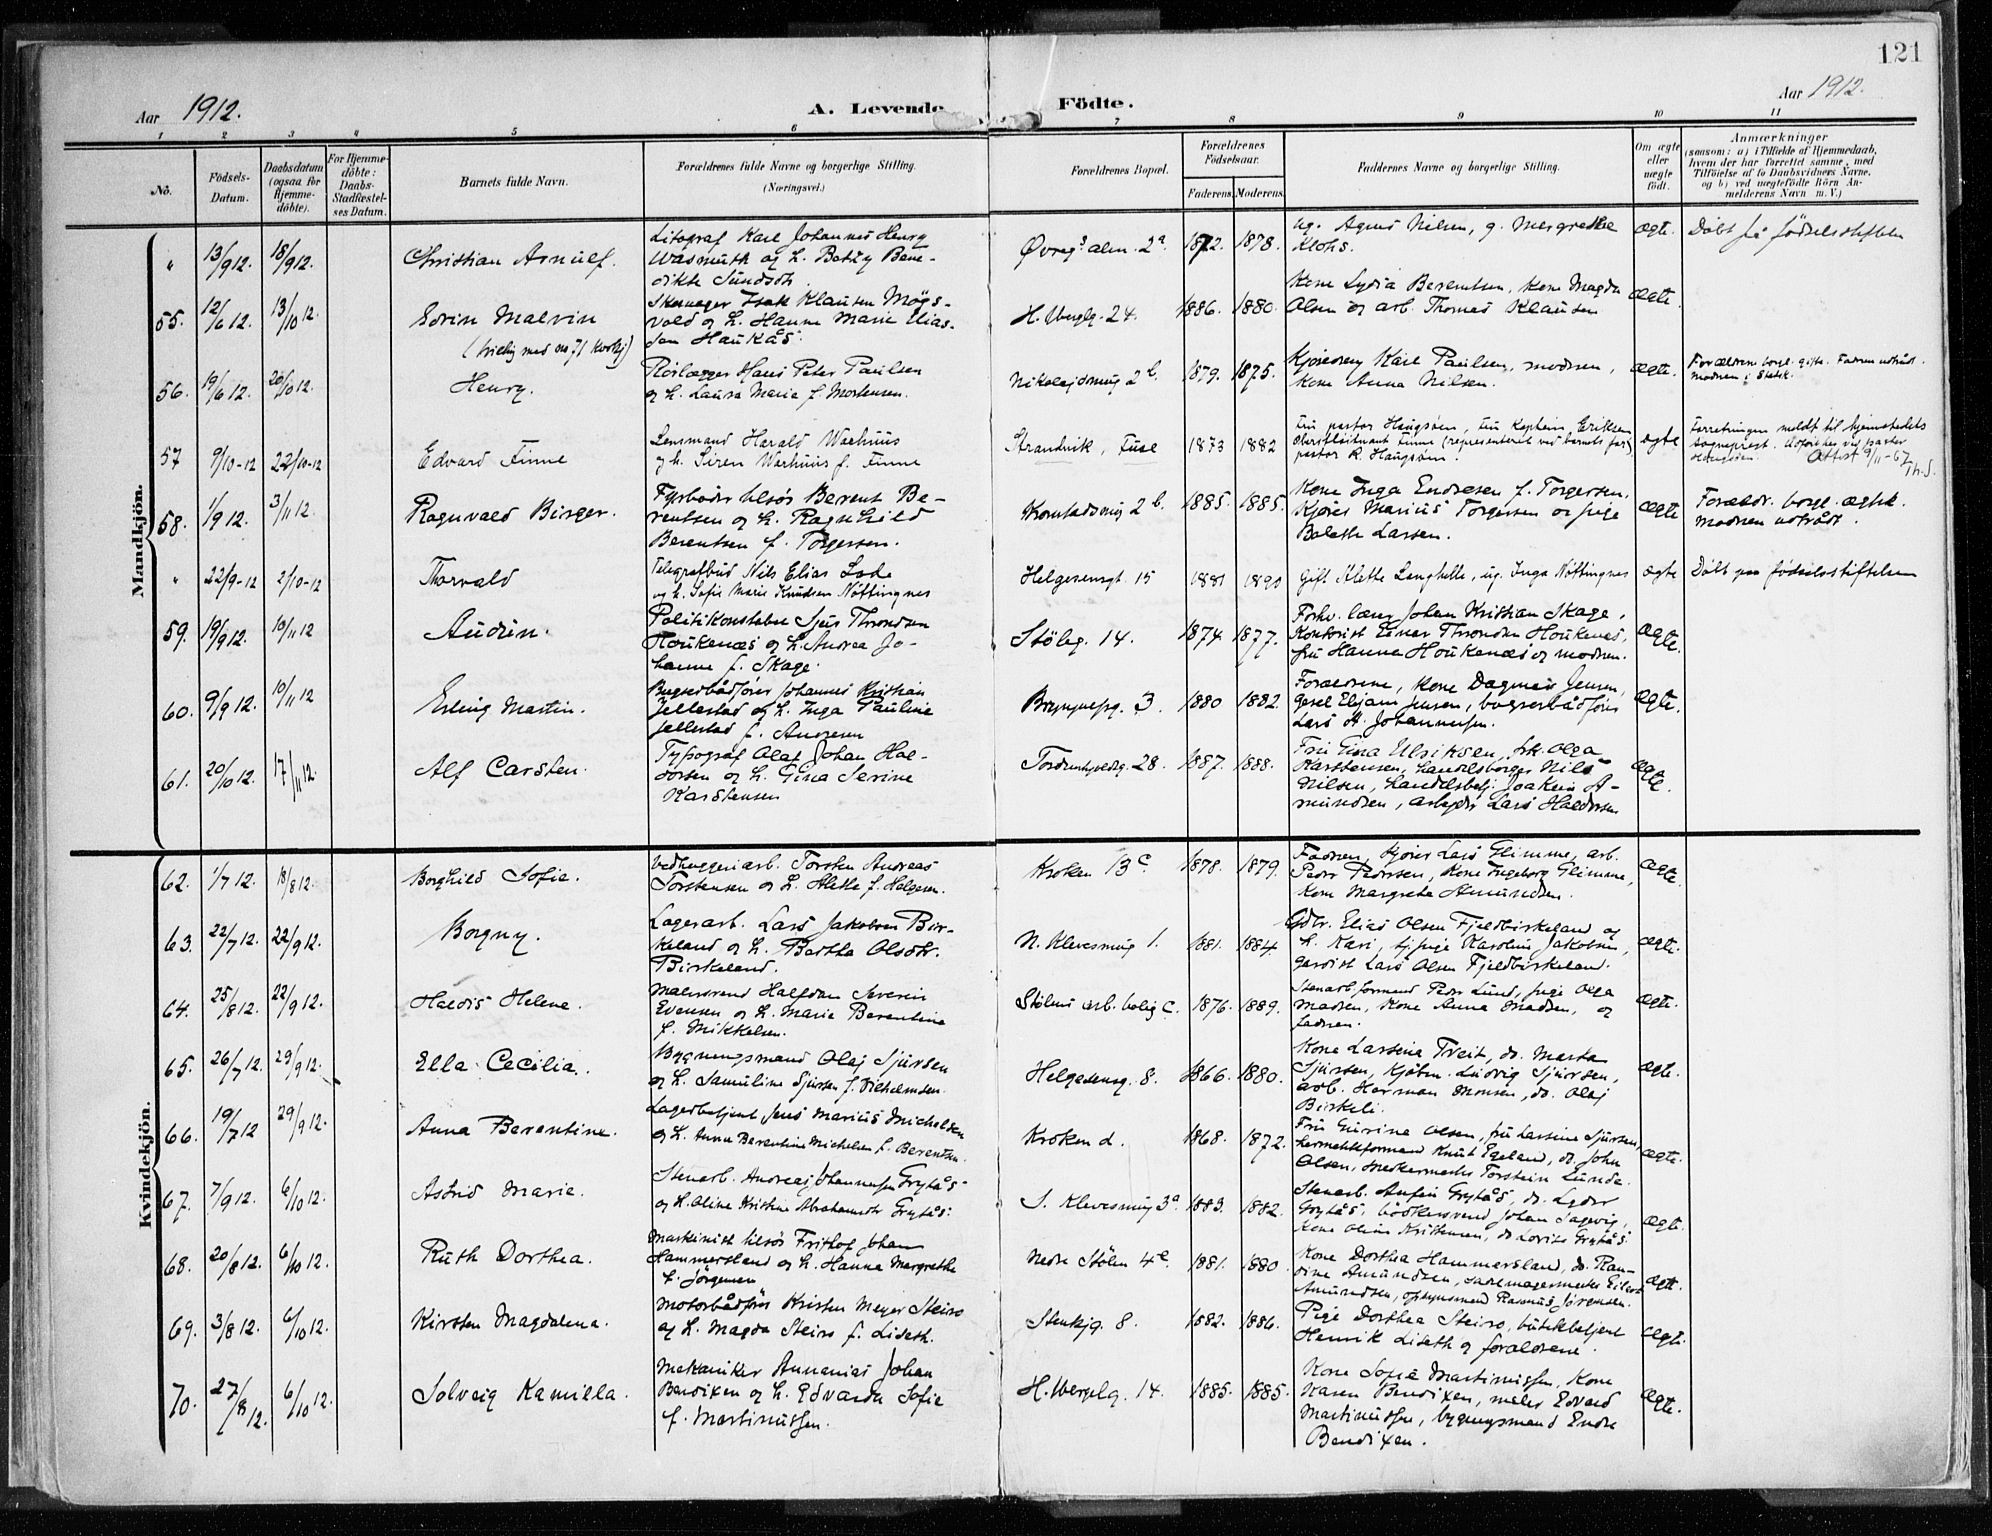 121
Aar 1912.
A. Levende Födte.
Aar 1912.
1 2 3 4 5 6 7 8 9 10 11
No.
Födsels-Datum.
Daabsdatum (ogsaa for Hjemme-döbte).
For Hjemme-döbte: Daabs-Stadfæstel-ses Datum.
Barnets fulde Navn.
Forældrenes fulde Navne og borgerlige Stilling.
(Næringsvei.)
Forældrenes Bopæl.
Forældrenes Födselsaar.
Faderens. Moderens.
Faddernes Navne og borgerlige Stilling.
Om ægte eller uægte födt.
Anmærkninger
(saasom: a) i Tilfælde af Hjemmedaab, hvem der har forrettet samme, med Tilföielse af to Daabsvidners Navne, og b) ved uægtefödte Börn An-melderens Navn m. V.)
Mandkjön.
" 13/9 12. 18/9 12. Christian Arnulf.
Litograf Karl Johannes Henry
Wasmuth og h. Betzy Bene-
dikte Sundsdh.
Øvreg? alm. 2a 1872. 1878.
ug. Agnes Nilsen, g. Mergrethe
Klohs.
ægte. Døbt på fødselsstiftelsen
55. 12/6 12. 13/10 12. Edvin Malvin
(tvilling med no 71 kvkj)
Skomager Isak Klausen Mögs-
vold og h. Hanne Marie Elias-
sen Haukås.
H. Wergelg. 24. 1886. 1880.
Kone Lydia Berentsen, kone Magda
Olsen og arb. Thomas Klausen
ægte.
56. 19/6 12. 20/10 12. Henry.
Rörlægger Hans Peter Paulsen
og h. Laura Marie f. Mortensen.
Nikolajsmug 2b. 1879. 1875.
Kjøresv. Karl Paulsen, modren,
kone Anna Nilsen.
ægte. Forældrene borgl. gifte. Fadren udtrådt.
modren i Statsk.
57 9/10-12 22/10-12 Edvard Finne
Lensmand Harald Warhuus
og h. Siren Warhuus f. Finne
Strandvik, Fuse 1873 1882
Fru pastor Haugsøen, fru kaptein Eriksen
oberstløitnant Finne (repræsenteret ved barnets far),
pastor K. Haugsøen.
ægte Forretningen meldt til hjemstedets
sogneprest. Udførtes ved pastor
Haugsøen. Attest 9/11-67
58. 1/9 12. 3/11 12 Ragnvald Birger.
Fyrbøder tilsjøs Berent Be-
rentsen og h. Ragnhild
Berentsen f. Torgersen.
Kronstadsmug 2b. 1885. 1885.
Kone Inga Endresen f. Torgersen.
Kjører Marius Torgersen og pige
Bolette Larsen.
ægte Forældr. borgl. ægtev.
Modren udtrådt.
" 22/9-12 2/10-12 Thorvald
Telegrafbud Nils Elias Lode
og h. Sofie Marie Knudsen Nöttingnes
Helgesensgt 15 1881 1890
Gift Alette Langhelle, ug. Inga Nöttingnes
ægte Döbt paa födselsstiftelsen
59. 19/9 12. 10/11 12 Audun.
Politikonstabel Sjur Thronsen
Houkenæs og h. Andrea Jo-
hanne f. Skage.
Stöleg. 14. 1874. 1877.
Forhv. lærer Johan Kristian Skage,
Kontorist Einar Thronsen Houkenæs,
fru Hanna Houkenæs og modren.
ægte.
60. 9/9 12. 10/11 12 Erling Martin.
Bugserbådfører Johannes Kristian
Jellestad og h. Inga Pauline
Jellestad f. Andresen
Brynjulfsg. 3. 1880 1882.
Forældrene, kone Dagmar Jensen,
Gesel Elijam Jensen, bugserbådfører
Lars A. Johannesen.
ægte.
61. 20/10 12. 17/11 12. Alf Carsten.
Typograf Olaf Johan Hal-
dorsen og h. Gina Serine
Karstensen
Tordenskjoldsg. 28. 1887. 1888.
Fru Gina Ulriksen, frk. Olga
Karstensen, handelsborger Nils
Nilsen, handelsbetj. Joakim A-
mundsen, arbejder Lars Haldorsen
ægte.
Kvindekjön.
62. 1/7 12. 18/8 12. Borghild Sofie.
Vedhuggeriarb. Torsten Andreas
Torstensen og h. Alette f. Helgesen.
Kroken 13c 1878. 1879.
Fadren, Kjører Lars Glimme, arb.
Peder Pedersen, kone Ingeborg Glimme,
kone Margrete Amundsen.
ægte.
63. 22/7 12. 22/9 12. Borgny.
Lagerarb. Lars Jakobsen Bir-
keland og h. Bertha Olsdtr.
Birkeland.
N. Klevesmug 1. 1881. 1884.
Gdbr. Elias Olsen Fjeldbirkeland og
h. Kari, tj.pige Karoline Jakobsen,
gardist Lars Olsen Fjeldbirkeland.
ægte.
64. 25/8 12. 22/9 12. Haldis Helene.
Malersvend Halfdan Severin
Evensen og h. Marie Berentine
f. Mikkelsen.
Stölens arb. bolig C. 1876. 1889.
Stenarb.formand Peder Lund, pige Olga
Madsen, kone Anna Madsen, og
fadren.
ægte.
65. 26/7 12. 29/9 12. Ella Cecilia.
Bygningsmand Olaj Sjursen
og h. Samuline Sjursen f. Vilhelmsen.
Helgesensg. 8. 1866. 1880.
Kone Larsine Treit, do. Marta
Sjursen, Kjøbm. Ludvig Sjursen,
arb. Herman Monsen, do. Olaj
Birkeli.
ægte.
66. 19/7 12 29/9 12. Anna Berentine.
Lagerbetjent Jens Marius Michelsen
og h. Anna Berentine Michelsen f. Berentsen.
Kroken d. 1868. 1872.
Fru Gurine Olsen, fru Larsine Sjursen,
formand Knut Egeland, do. John
Olsen, snekkermester Torstein Lunde.
ægte.
67. 7/9 12. 6/10 12. Astrid Marie.
Stenarb. Andreas Johannesen Grytås
og h. Oline Kristine Abrahamsdtr Grytås.
S. Klevesmug 3a 1883. 1882.
Stenarb. Anfin Grytås, do. Lyder
Grytås, bödkersvend Johan Sagevig,
kone Oline Kristensen, do Lovise Grytås.
ægte.
68. 20/8 12. 6/10 12. Ruth Dorthea.
Maskinist tilsjøs Fritjof Johan
Hammersland og h. Hanna Margrethe
f. Jørgensen
Nedre Stölen 4e. 1881. 1880.
Kone Dorthea Hammersland, do. Ran-
dine Amundsen, sadelmagermester Eilert
Amundsen, opsynsmand Rasmus Jørgensen.
ægte.
69. 3/8 12. 6/10 12. Kirsten Magdalena.
Motorbådfører Kristen Meyer Steiro
og h. Magda Steiro f. Lideth.
Stenkjg. 8. 1882. 1886.
Pige Dorthea Steiro, butikbetjent
Henrik Lideth og forældrene.
ægte.
70. 27/8 12. 6/10 12. Solveig Kamilla.
Mekaniker Annanias Johan
Bendixen og h. Edvarda Sofie
f. Martinussen.
H. Wergelg. 14. 1885. 1885.
Kone Sofie Martinussen, kone
Karen Bendixen, maler Edvard
Martinussen, bygningsmand Endre
Bendixen.
ægte.